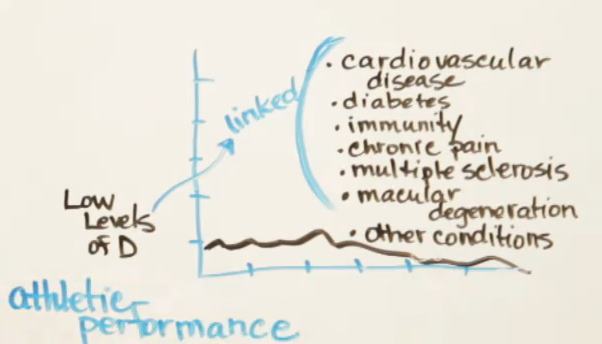 • cardiovascular
disease
• diabetes
• immunity
• chronic pain
• multiple sclerosis
• macular
degeneration
• other conditions
linked
Low
Levels
of D
athletic
performance